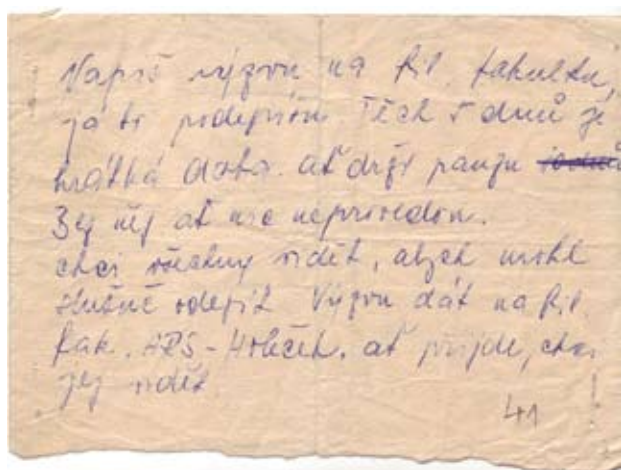 Napiš výzvu na fil. fakultu,
já to podepíšu. Těch 5 dnů je
krátká doba. ať drží pauzu
ať nic neprovedou.
chci všechny vidět, abych mohl
slušně odejít Výzvu dát na fil.
fak. - Holeček. ať přijde, chci
jej vidět !
41